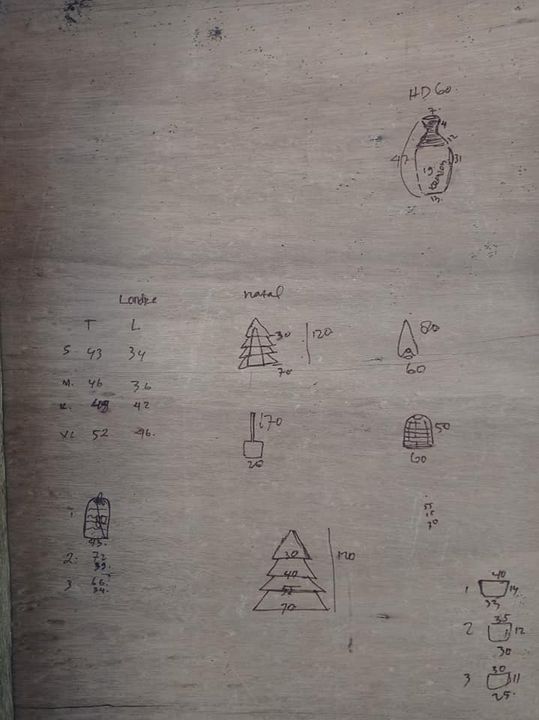 HD 60
7.
4
12
47
19
31
13
T L
S 43 34
M. 46 36
42
VL 52 46.
natal
30
120
70
80
60
170
20
50
60
1
43.
2. 72
39.
3 66
34.
30
40
52
70
120
55
15
30
1 40
14
33
2 35
12
30
3 30
11
25.